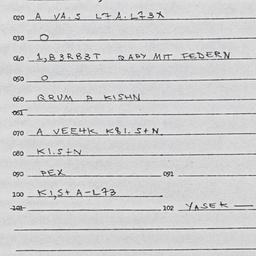 020 A VA. S L7 A. L73X
030 O
040 1,B3RB3T BABY MIT FEDERN
050 O
060 GRUM A KISHN
061
070 A VEE4K K81. S+N
080 K1.S+N
090 PEX 091
100 K1,S+ A-L73
101 102 YASEK —